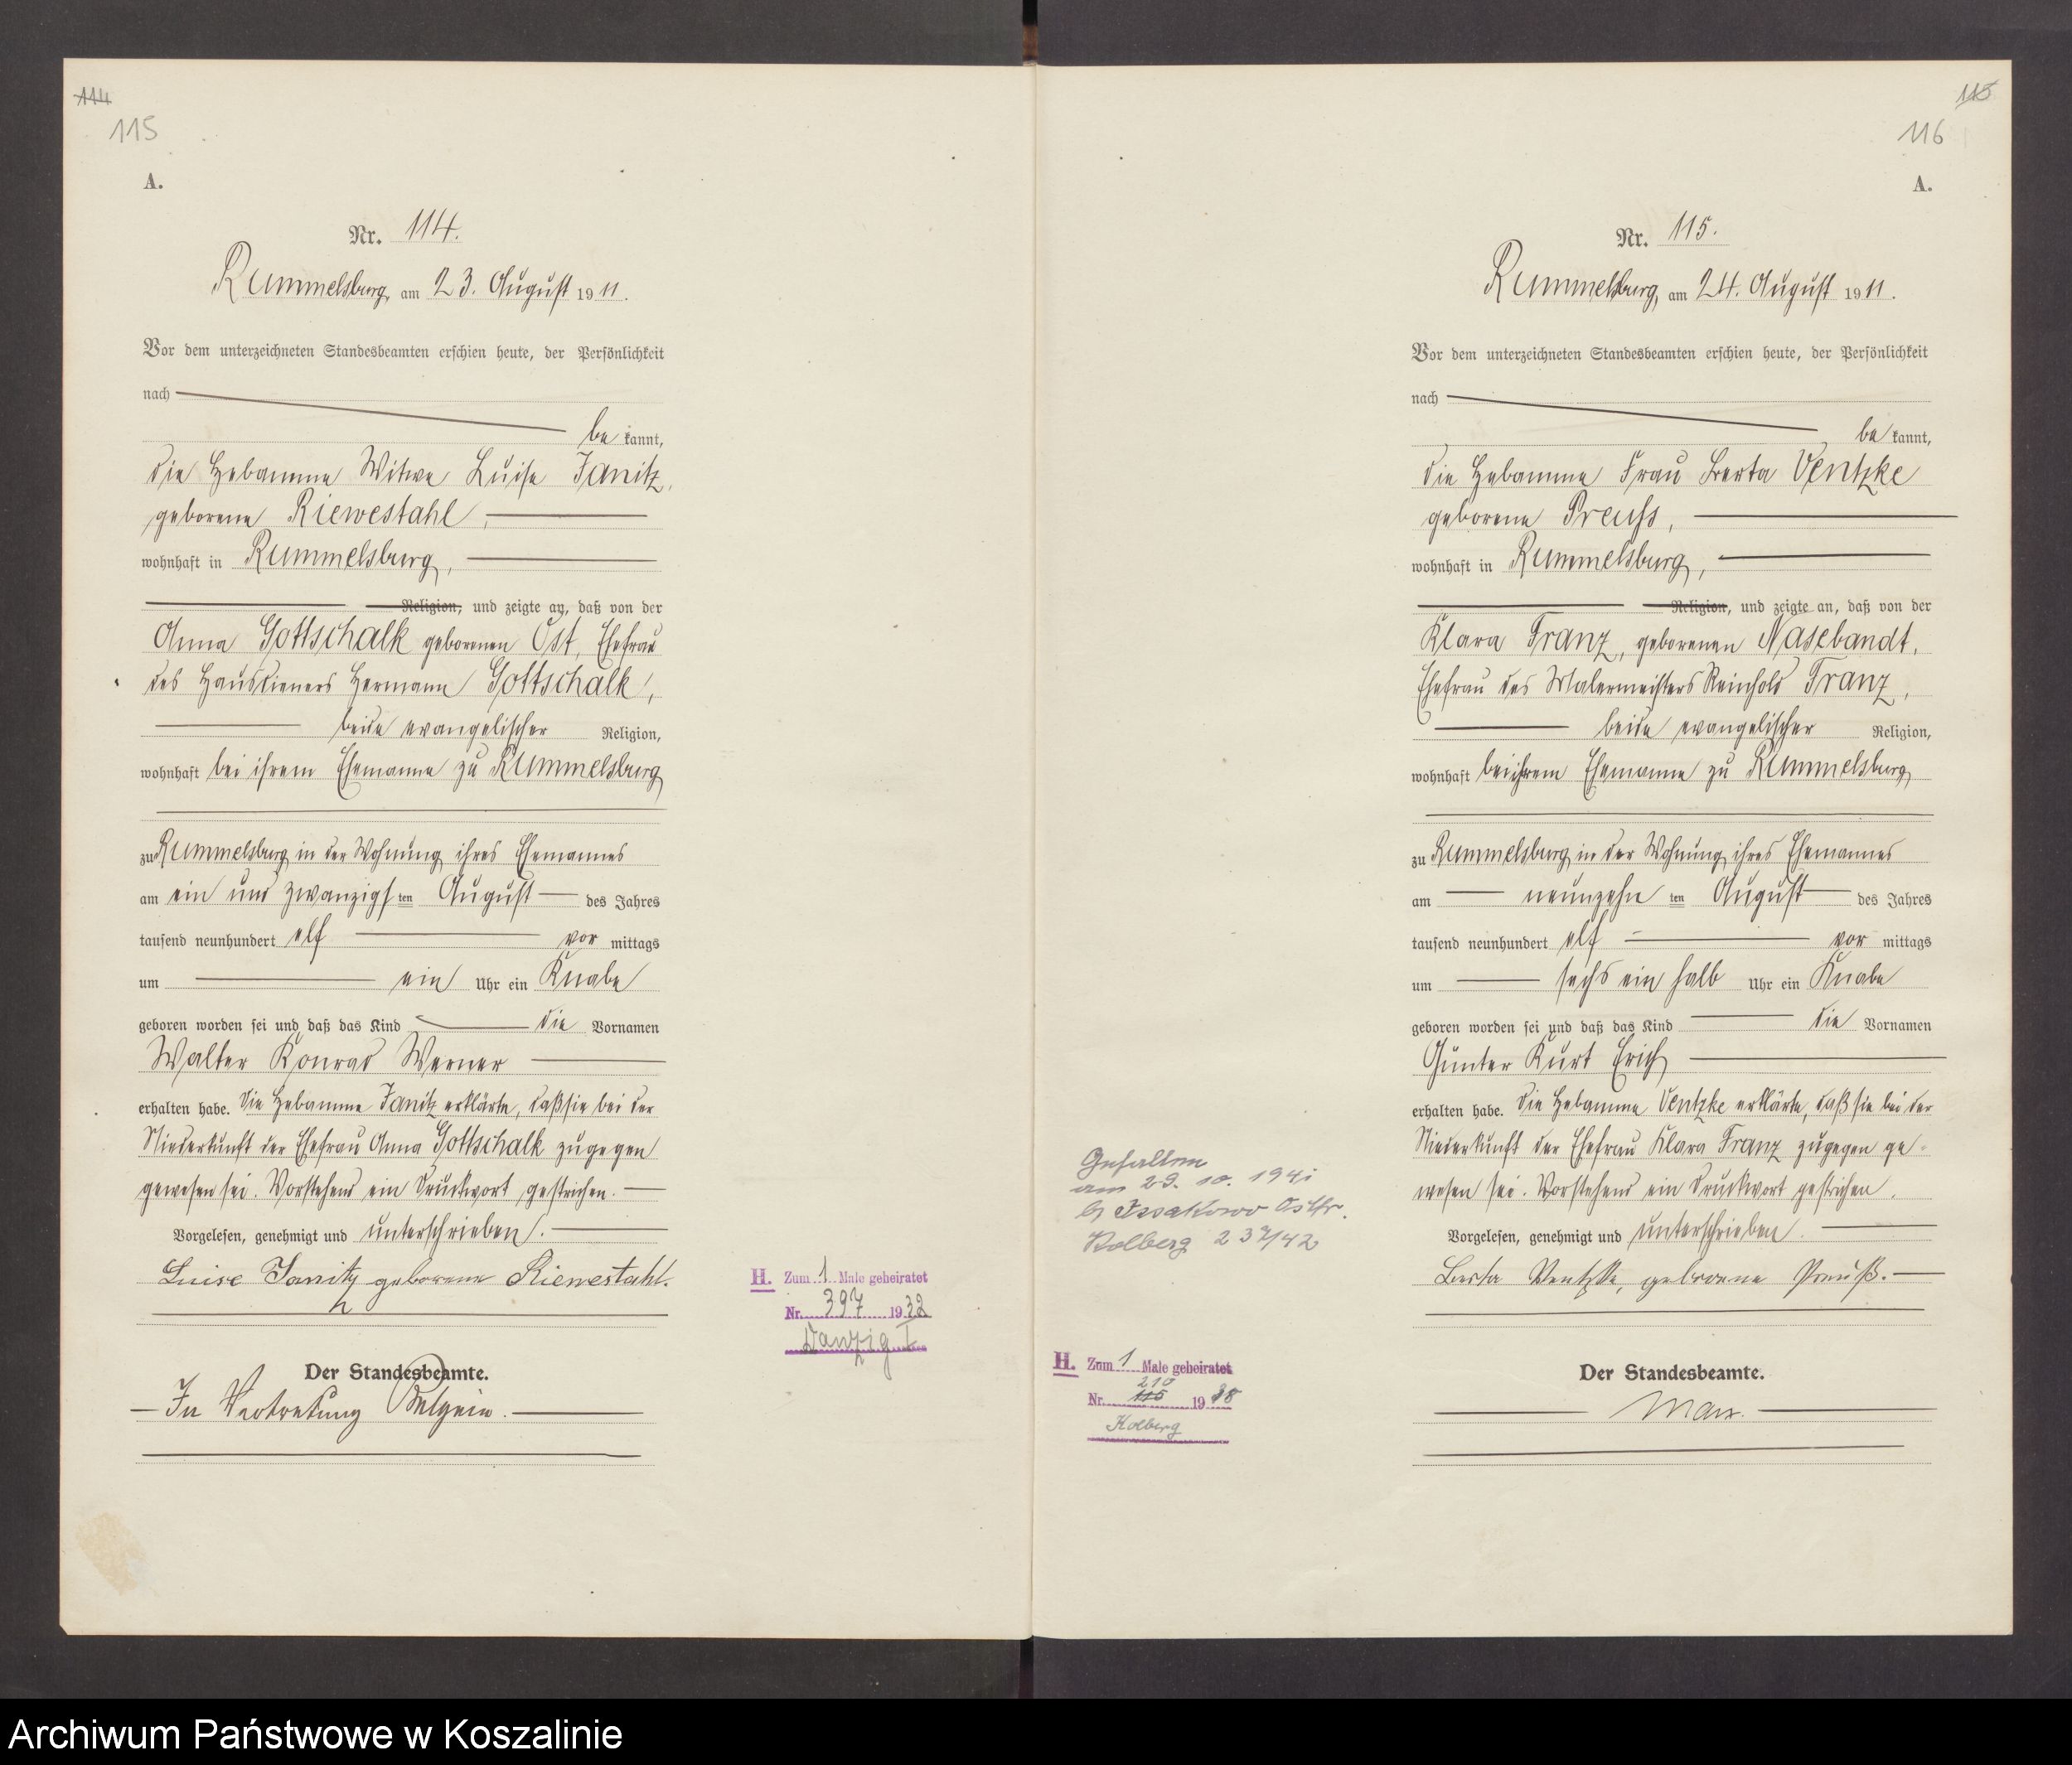 114
115
A.
Nr. 114.
Rummelsburg, am 23. August 1911.
Vor dem unterzeichneten Standesbeamten erschien heute, der Persönlichkeit
nach
be kannt,
die Hebamme Witwe Luise Janitz,
geborene Riewestahl,
wohnhaft in Rummelsburg,
Religion, und zeigte an, daß von der
Anna Gottschalk geborenen Ost, Ehefrau
des Hausdieners Hermann Gottschalk,
beide evangelischer Religion,
wohnhaft bei ihrem Ehemanne zu Rummelsburg
zu Rummelsburg in der Wohnung ihres Ehemannes
am ein und zwanzigsten August des Jahres
tausend neunhundert elf vor mittags
um ein Uhr ein Knabe
geboren worden sei und daß das Kind die Vornamen
Walter Konrad Werner
erhalten habe. Die Hebamme Janitz erklärte, daß sie bei der
Niederkunft der Ehefrau Anna Gottschalk zugegen
gewesen sei. Vorstehend ein Druckwort gestrichen.
Vorgelesen, genehmigt und unterschrieben.
Luise Janitz geborene Riewestahl.
Der Standesbeamte.
In Vertretung
H. Zum 1 Male geheiratet
Nr. 397 1932
Danzig I
115
116
A.
Nr. 115.
Rummelsburg, am 24. August 1911.
Vor dem unterzeichneten Standesbeamten erschien heute, der Persönlichkeit
nach
be kannt,
die Hebamme Frau Berta Ventzke
geborene Preuss,
wohnhaft in Rummelsburg,
Religion, und zeigte an, daß von der
Klara Franz, geborenen Nasebandt,
Ehefrau des Malermeisters Reinhold Franz,
beide evangelischer Religion,
wohnhaft bei ihrem Ehemanne zu Rummelsburg
zu Rummelsburg in der Wohnung ihres Ehemannes
am neunzehnten August des Jahres
tausend neunhundert elf vor mittags
um sechs ein halb Uhr ein Knabe
geboren worden sei und daß das Kind die Vornamen
Günter Kurt Erich
erhalten habe. Die Hebamme Ventzke erklärte, daß sie bei der
Niederkunft der Ehefrau Klara Franz zugegen ge-
wesen sei. Vorstehend ein Druckwort gestrichen.
Vorgelesen, genehmigt und unterschrieben.
Berta Ventzke, geborene Preuß.
Der Standesbeamte.
Gefallen
am 29. 10. 1941
b/ Issakowo Ostfr.
Kolberg 237/42
H. Zum 1 Male geheiratet
210
Nr. 115 1938
Kolberg
Archiwum Państwowe w Koszalinie